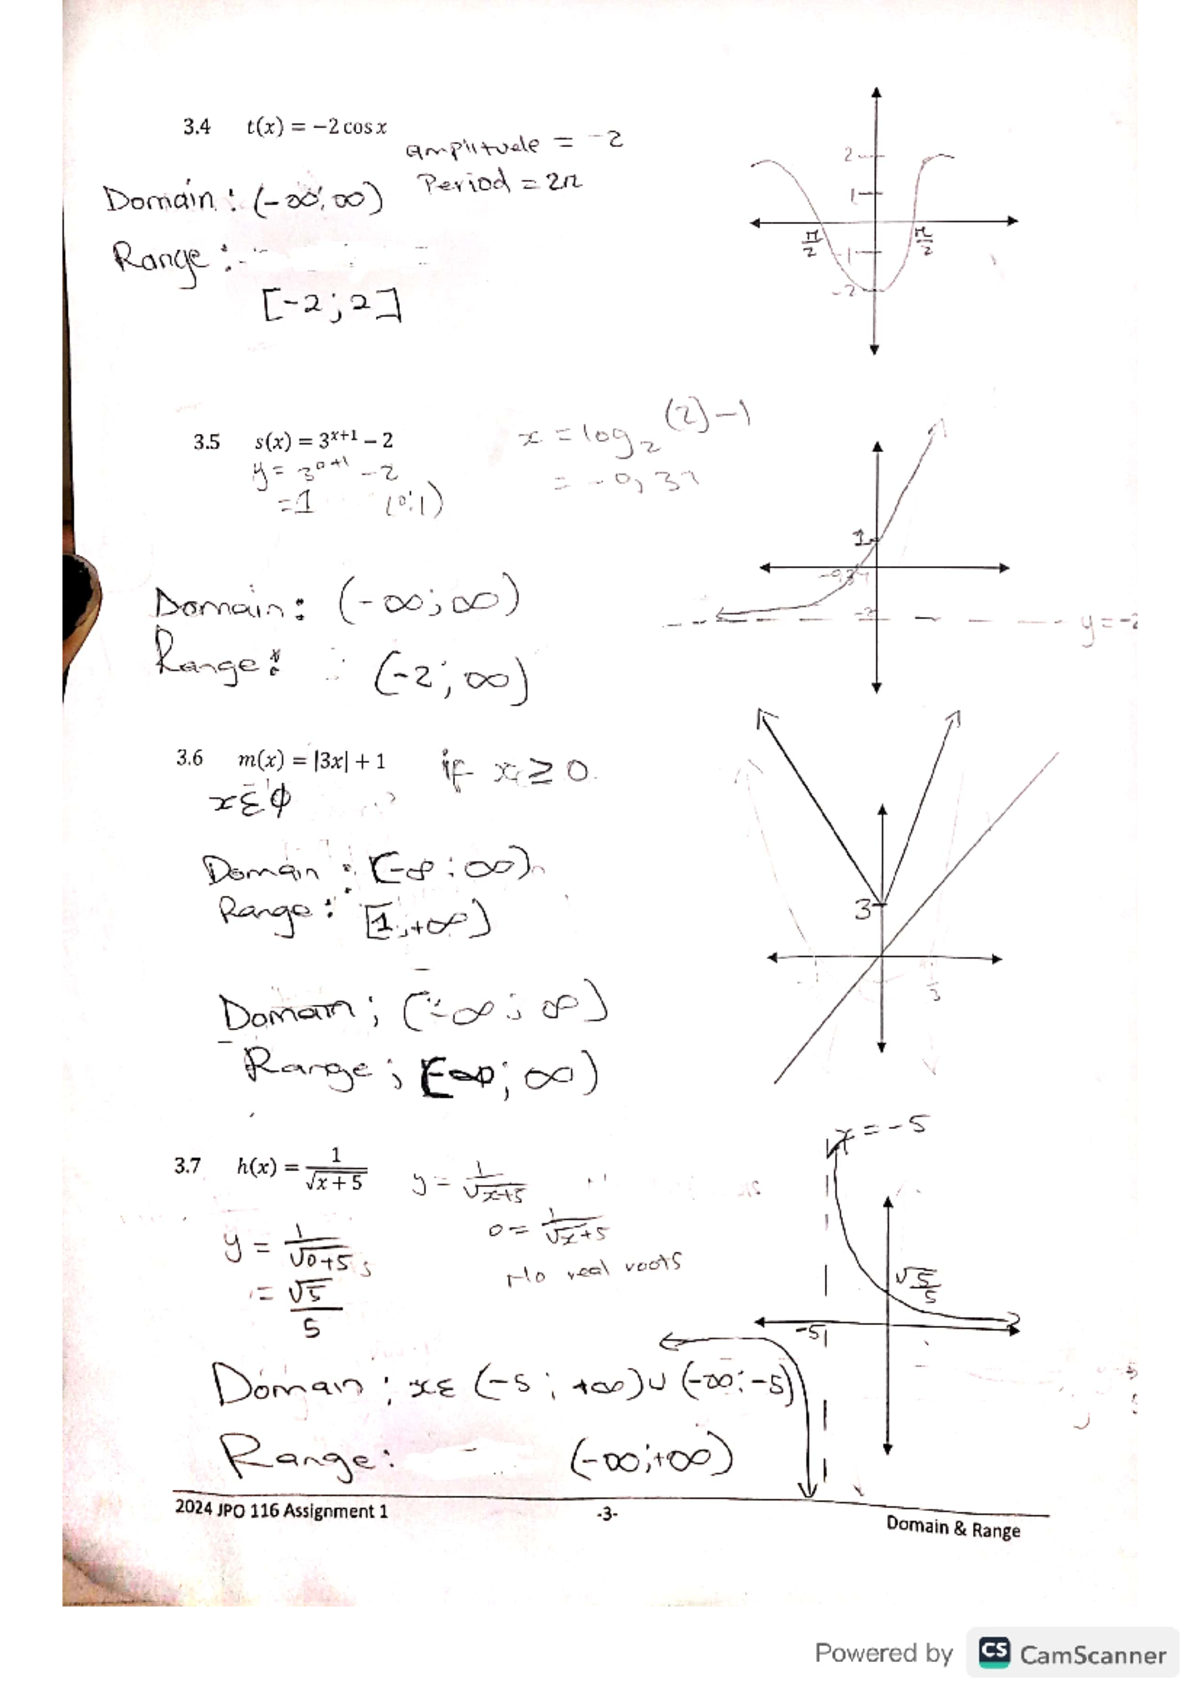 3.4 t(x) = −2 cos x
amplitude = -2
Period = 2π
Domain : (-∞; ∞)
Range :
[-2 ; 2]
2
1
π/2
π/2
-1
-2
3.5 s(x) = 3^(x+1) − 2
x = log₂(2) - 1
y = 3^(0+1) - 2
= 1 (0;1)
= -0,37
1
-0,37
-2
y = -2
Domain : (-∞; ∞)
Range : (-2; ∞)
3.6 m(x) = |3x| + 1
if x ≥ 0
Domain : (-∞ ; ∞)
Range : [1 ; +∞)
3
Domain ; (-∞ ; ∞)
Range ; [-∞ ; ∞)
x = -5
3.7 h(x) = 1/√(x + 5)
y = 1/√(x+5)
0 = 1/√(x+5)
No real roots
y = 1/√(0+5)
= √5/5
√5/5
-5
Domain ; xε (-5 ; +∞) ∪ (-∞ ; -5)
Range : (-∞ ; +∞)
2024 JPO 116 Assignment 1
-3-
Domain & Range
Powered by CS CamScanner